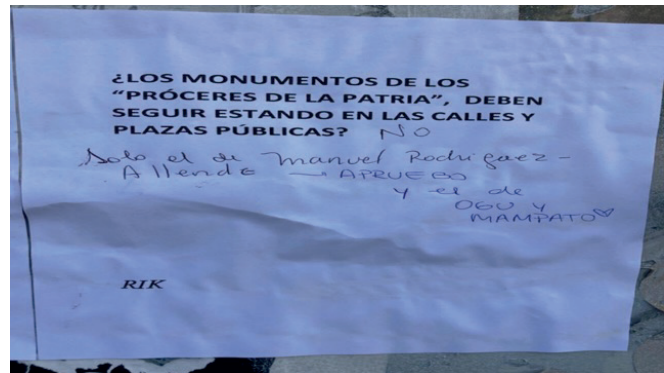 ¿LOS MONUMENTOS DE LOS
“PRÓCERES DE LA PATRIA”, DEBEN
SEGUIR ESTANDO EN LAS CALLES Y
PLAZAS PÚBLICAS? NO
Solo el de Manuel Rodriguez -
Allende → APRUEBO
y el de
OGU Y
MAMPATO♡
RIK